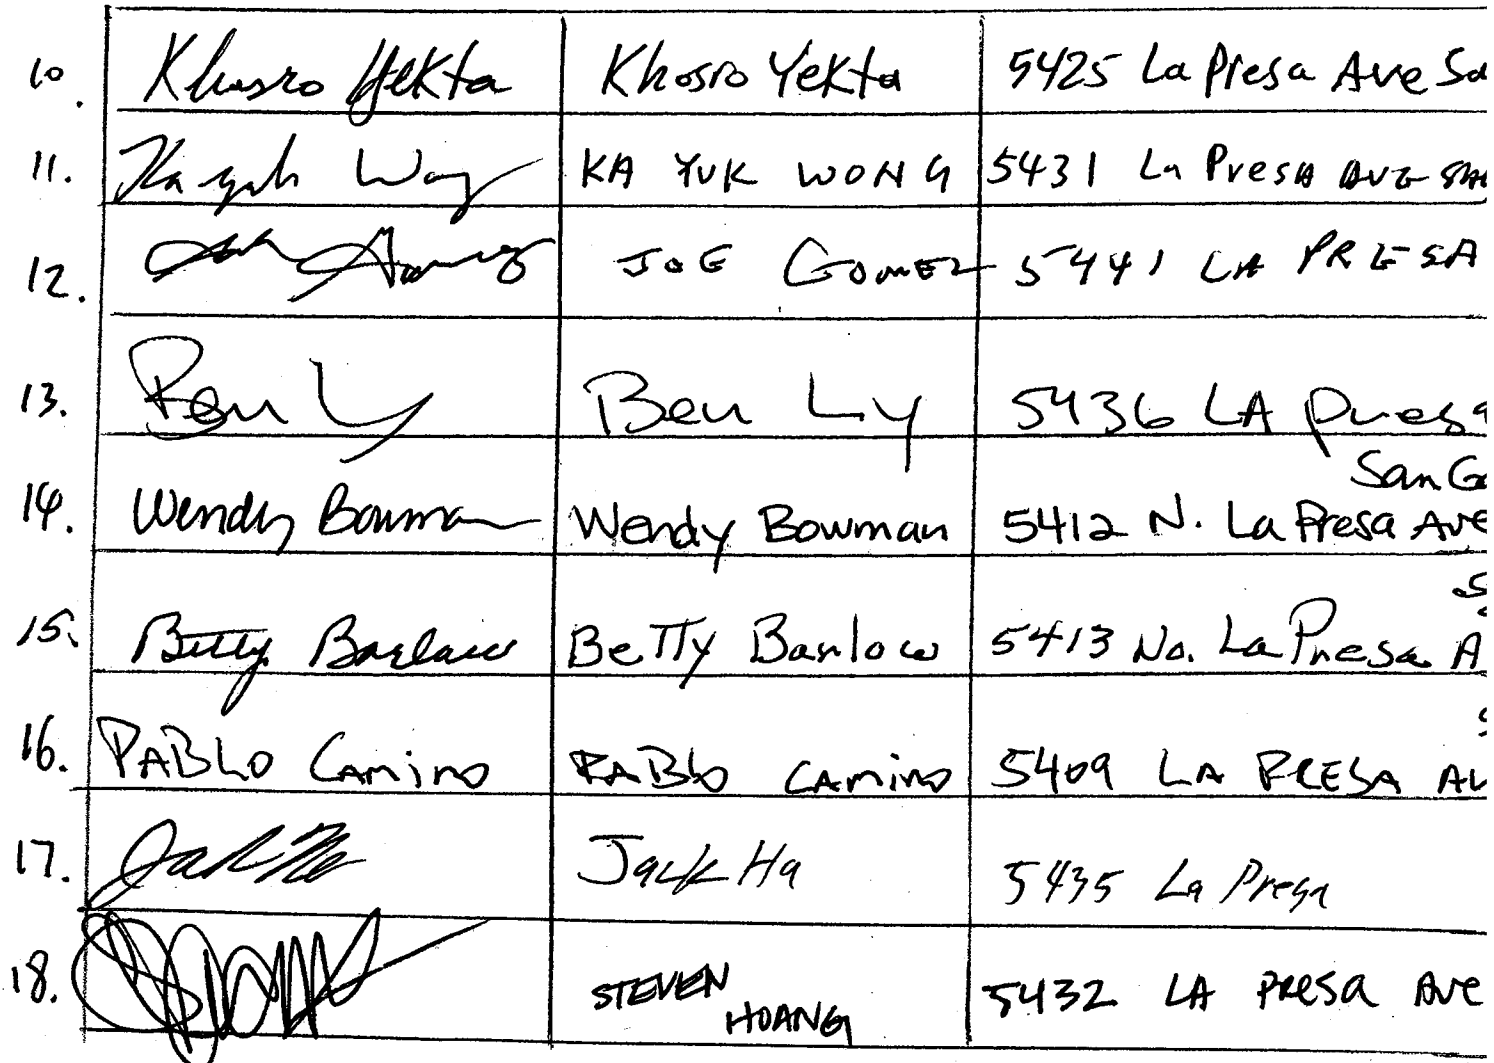 10. Khosro Yekta Khosro Yekta 5425 La Presa Ave Sa
11. Ka Yuk Wong KA YUK WONG 5431 La Presa AVE SAN
12. Gomez JOE GOMEZ 5441 LA PRESA
13. Ben Ly Ben Ly 5436 LA Presa
San Ga
14. Wendy Bowman Wendy Bowman 5412 N. La Presa Ave
S
15. Betty Barlow Betty Barlow 5413 No. La Presa A
S
16. PABLO Camino PABLO CAMINO 5409 LA PRESA AV
17. Jack Ha Jack Ha 5435 La Presa
18. STEVEN HOANG 5432 LA PRESA AVE